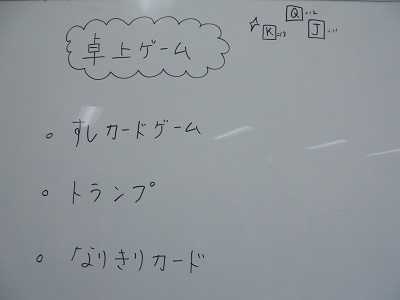 卓上ゲーム
Q=12
K=13 J=11
。すしカードゲーム
。トランプ
。なりきりカード